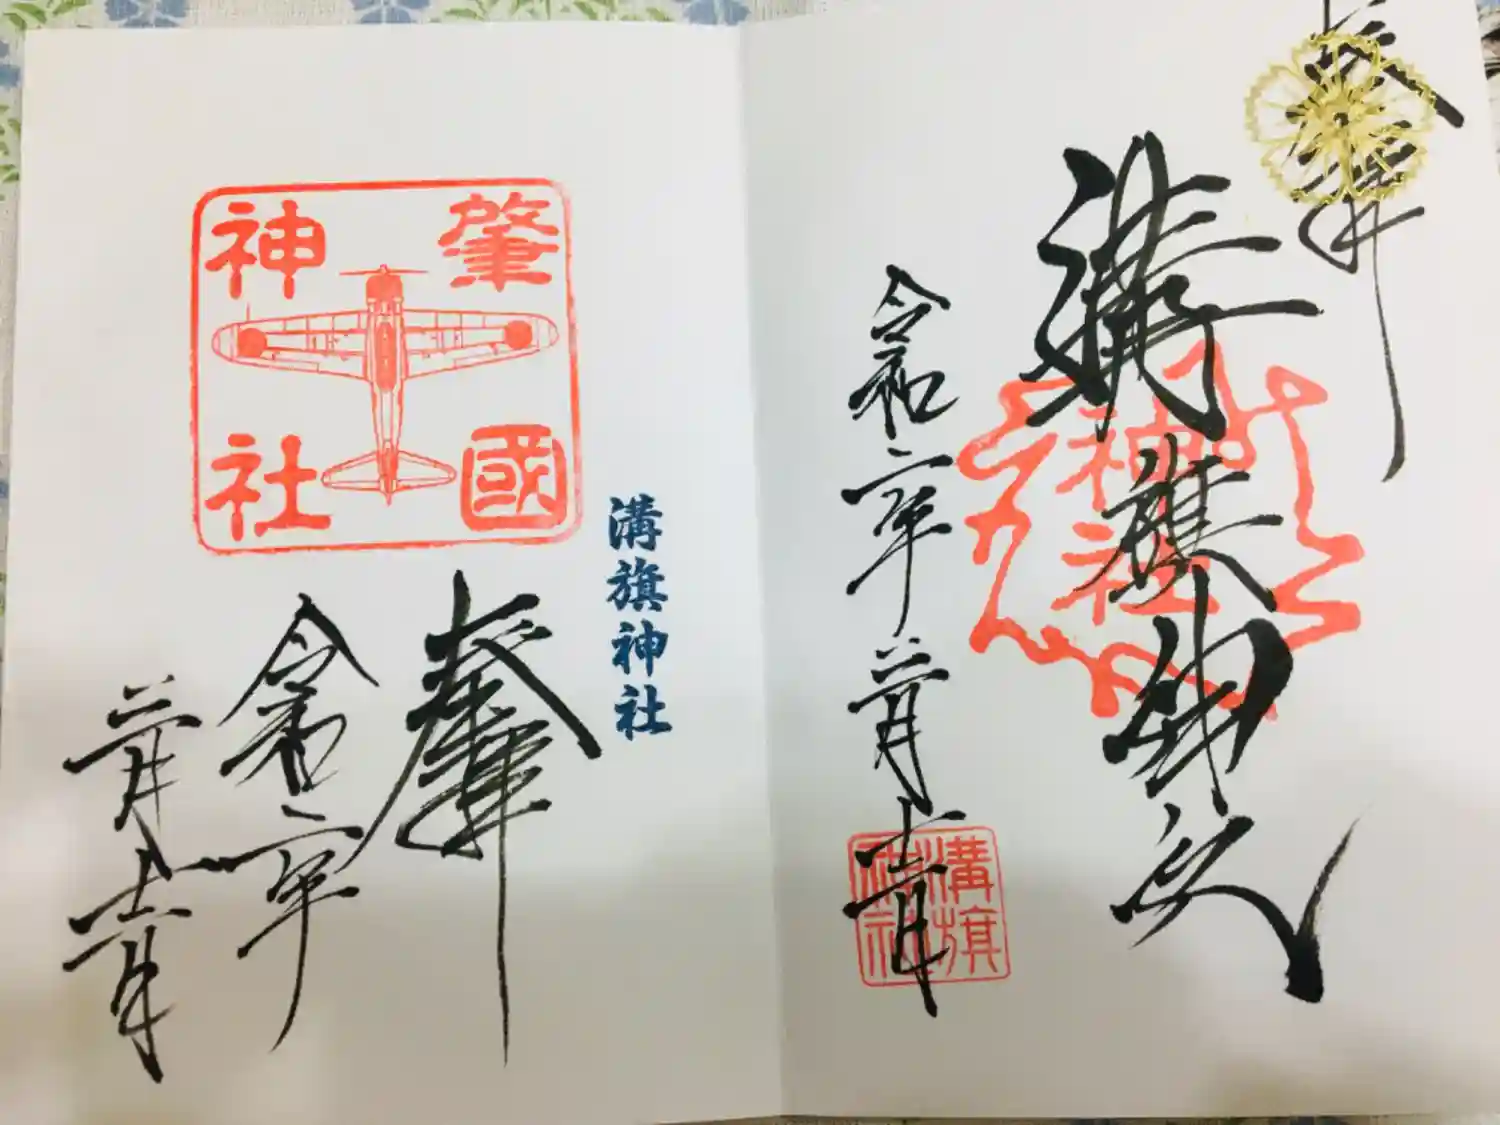 奉拝
溝旗神社
神社
令和二年二月十一日
溝旗神社
肇國神社
溝旗神社
奉拝
令和二年
二月十一日